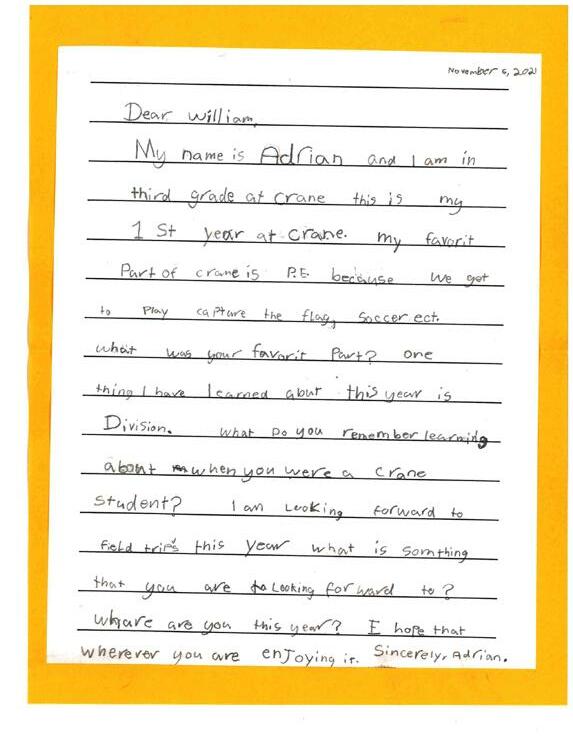 November 5, 2021
Dear William,
My name is Adrian and I am in
third grade at crane this is my
1 St year at Crane. my favorit
Part of crane is P.E. because we get
to Play capture the flag, Soccer ect.
what was your favorit Part? one
thing I have learned abut this year is
Division. what Do you remember learning
about when you were a crane
student? I am Looking forward to
field trips this year what is somthing
that you are Looking forward to?
whare are you this year? I hope that
wherever you are enJoying it. Sincerely, Adrian.